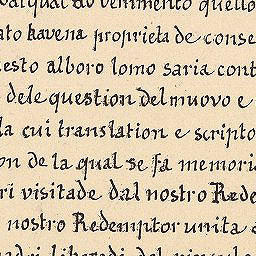 qualqual advenimento quello
ato havena proprieta de conse
esto alboro lomo saria cont
dele question del nuovo e
la cui translation e scripto
on de la qual se fa memori
ri visitade dal nostro Rede
nostro Redemptor unita